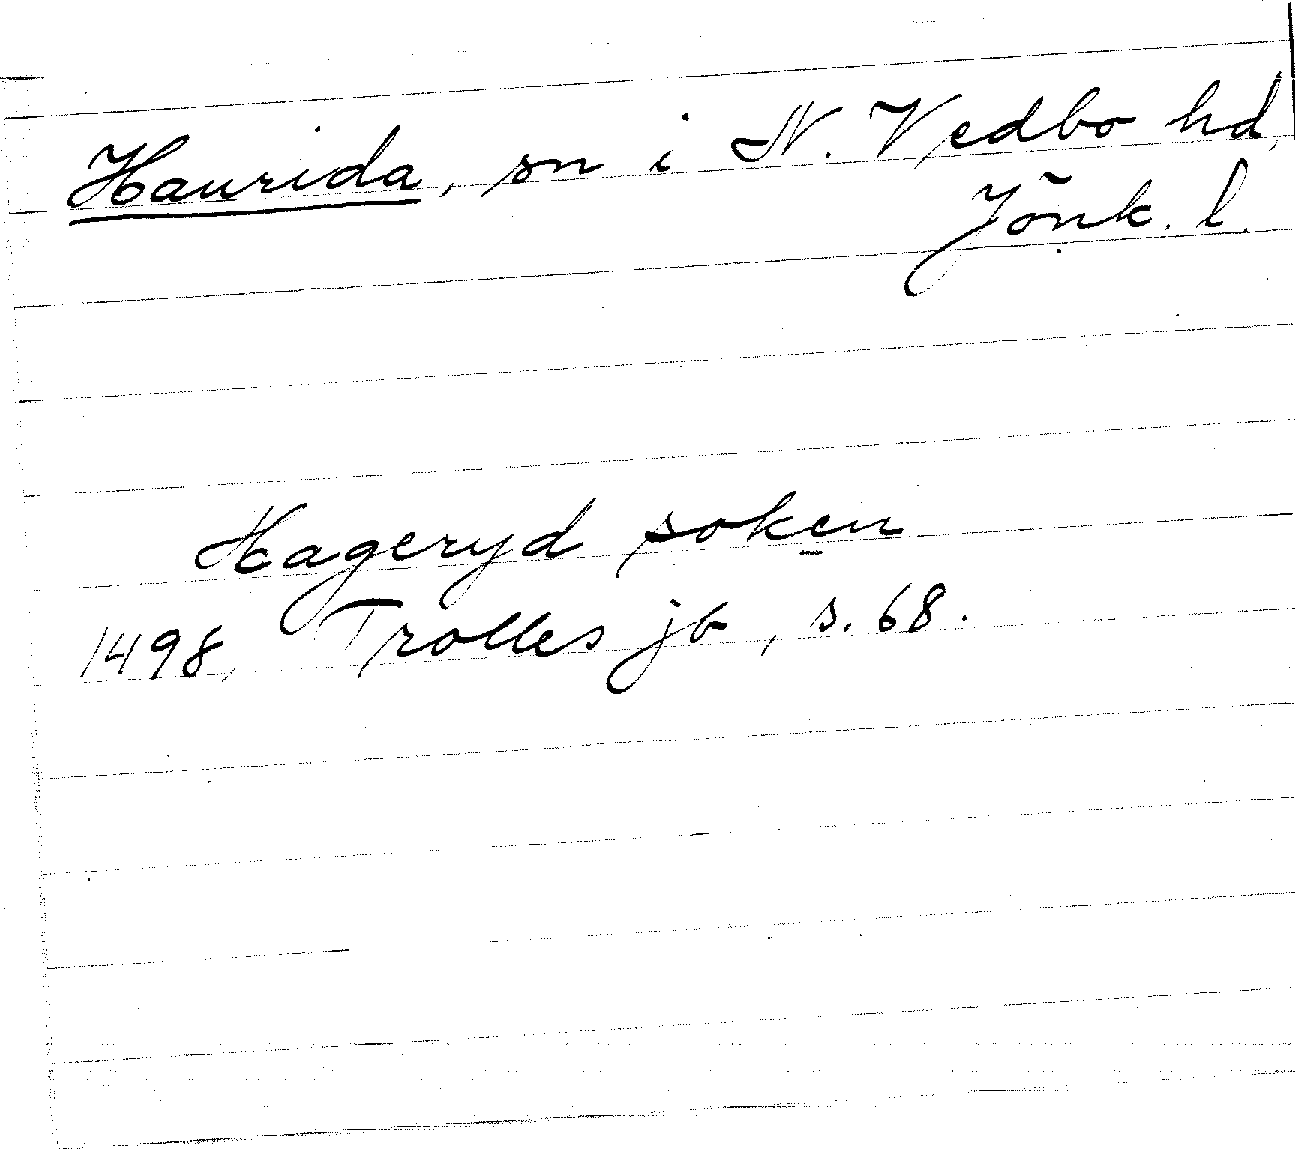 Haurida, sn i N. Vedbo hd,
Jönk. l.
Hageryd soken
1498, Trolles jb, s. 68.